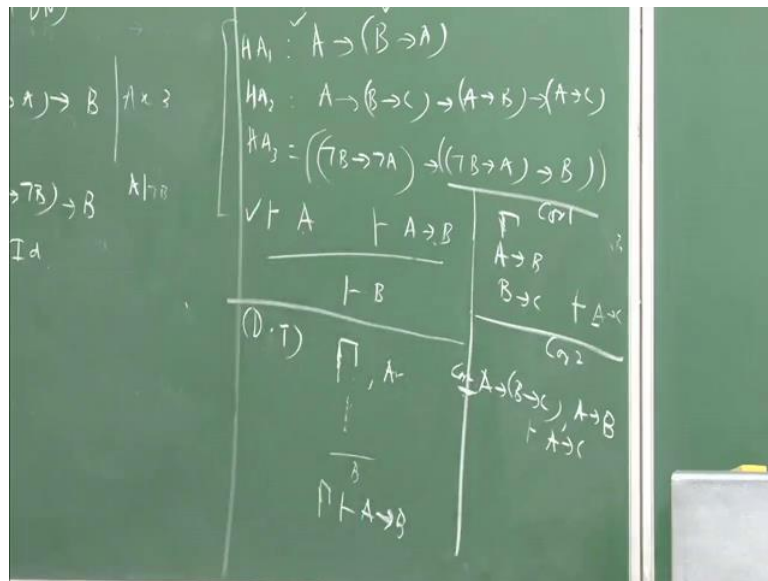 DN)
→ A) → B | Ax 3
→ ¬B) → B A|¬B
Id
HA₁ : A → (B → A)
HA₂ : A → (B → C) → (A → B) → (A → C)
HA₃ = ((¬B → ¬A) → ((¬B → A) → B))
✓ ⊢ A ⊢ A → B
⊢ B
(D.T)
Γ, A
B
Γ ⊢ A → B
Cor 1
Γ
A → B
B → C ⊢ A → C
Cor 2
A → (B → C), A → B
⊢ A → C